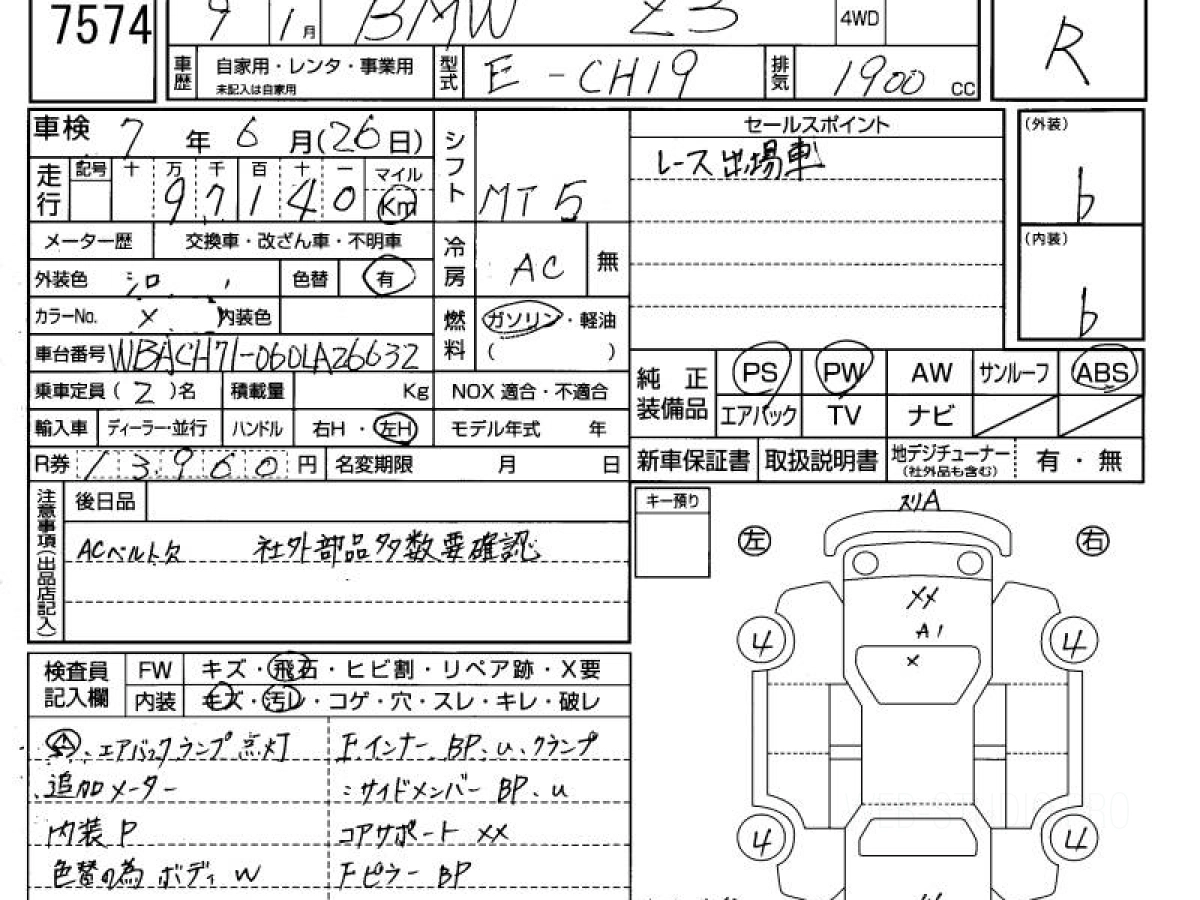 7574
9 1月 BMW Z3 4WD
車歴 自家用・レンタ・事業用 未記入は自家用 型式 E-CH19 排気 1900 CC
R
車検 7年6月(26日)
シフト MT5
走行 記号 十 万 千 百 十 一 マイル
97140 Km
メーター歴 交換車・改ざん車・不明車
冷房 AC 無
外装色 シロ 色替 有
カラーNo. × 内装色
燃料 ガソリン・軽油
( )
車台番号 WBACH71-060LA26632
乗車定員(2)名 積載量 Kg NOX 適合・不適合
輸入車 ディーラー・並行 ハンドル 右H・左H モデル年式 年
R券 13,960円 名変期限 月 日
セールスポイント
レース出場車
(外装)
b
(内装)
b
純正装備品 PS PW AW サンルーフ ABS
エアバック TV ナビ
新車保証書 取扱説明書 地デジチューナー (社外品も含む) 有・無
注意事項(出品店記入)
後日品
ACベルト欠 社外部品多数要確認
キー預り
スリA
左 右
XX
A1
×
4 4
4 4
検査員記入欄 FW キズ・飛石・ヒビ割・リペア跡・X要
内装 キズ・汚レ・コゲ・穴・スレ・キレ・破レ
エアバックランプ点灯
追加メーター
内装P
色替の為ボディW
Fインナー BP、u、クランプ
:サイドメンバー BP、u
コアサポート XX
Fピラー BP